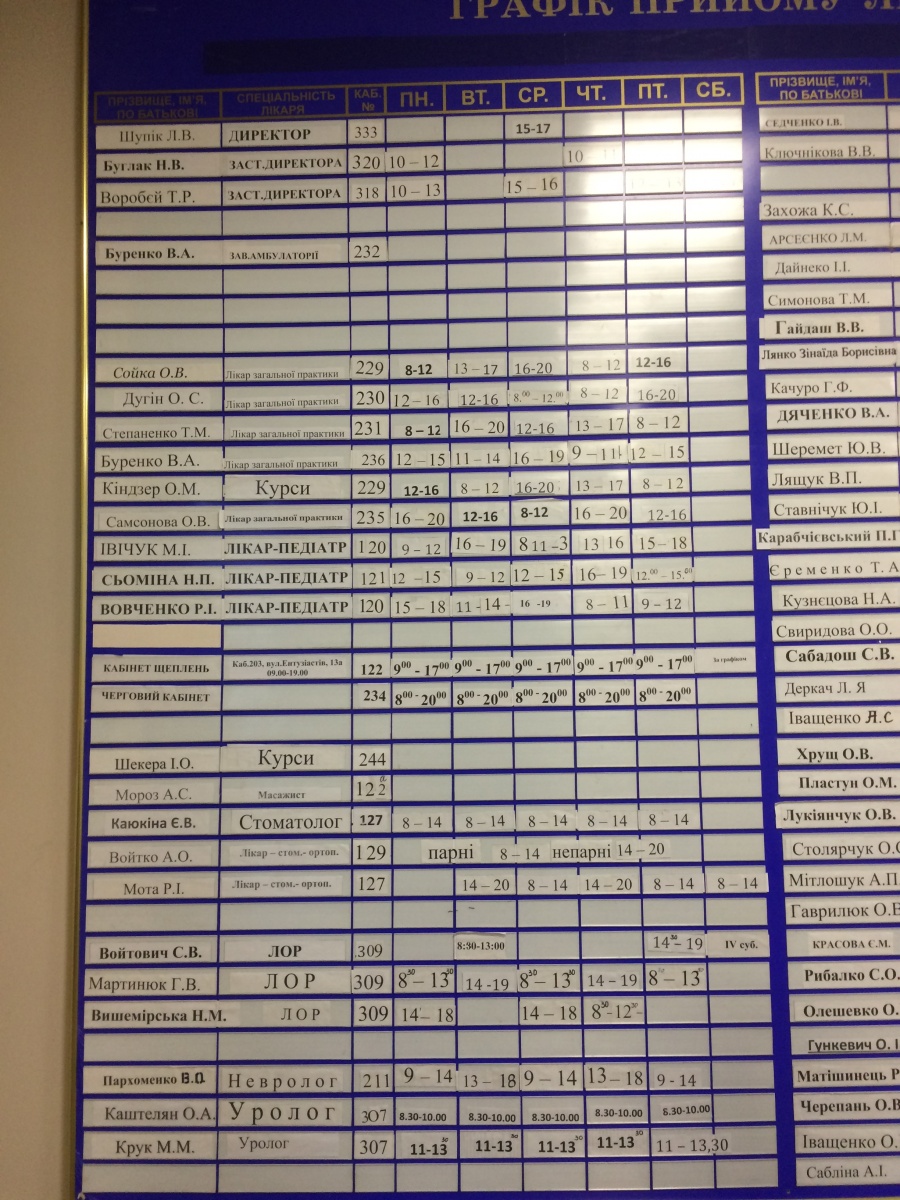 ГРАФІК ПРИЙОМУ
ПРІЗВИЩЕ, ІМ'Я, ПО БАТЬКОВІ СПЕЦІАЛЬНІСТЬ ЛІКАРЯ КАБ. № ПН. ВТ. СР. ЧТ. ПТ. СБ. ПРІЗВИЩЕ, ІМ'Я, ПО БАТЬКОВІ
Шупік Л.В. ДИРЕКТОР 333 15-17 СЕДЧЕНКО І.В.
Буглак Н.В. ЗАСТ.ДИРЕКТОРА 320 10 – 12 Ключнікова В.В.
Воробєй Т.Р. ЗАСТ.ДИРЕКТОРА 318 10 – 13 15 – 16
Захожа К.С.
Буренко В.А. ЗАВ.АМБУЛАТОРІЇ 232 АРСЕЄНКО Л.М.
Дайнеко І.І.
Симонова Т.М.
Гайдаш В.В.
Лянко Зінаїда Борисівна
Сойка О.В. Лікар загальної практики 229 8-12 13 – 17 16-20 8 – 12 12-16
Дугін О. С. Лікар загальної практики 230 12 – 16 12-16 8.00 – 12.00 8 – 12 16-20 Качуро Г.Ф.
Степаненко Т.М. Лікар загальної практики 231 8 – 12 16 – 20 12-16 13 – 17 8 – 12 ДЯЧЕНКО В.А.
Буренко В.А. Лікар загальної практики 236 12 – 15 11 – 14 16 – 19 9 – 11 12 – 15 Шеремет Ю.В.
Кіндзер О.М. Курси 229 12-16 8 – 12 16-20 13 – 17 8 – 12 Лящук В.П.
Самсонова О.В. Лікар загальної практики 235 16 – 20 12-16 8-12 16 – 20 12-16 Ставнічук Ю.І.
ІВІЧУК М.І. ЛІКАР-ПЕДІАТР 120 9 – 12 16 – 19 8 11 –3 13 16 15 – 18 Карабчієвський П.Г
СЬОМІНА Н.П. ЛІКАР-ПЕДІАТР 121 12 –15 9 – 12 12 – 15 16– 19 12.00 – 15.00 Єременко Т. А
ВОВЧЕНКО Р.І. ЛІКАР-ПЕДІАТР 120 15 – 18 11 -14 - 16 -19 8 – 11 9 – 12 Кузнєцова Н.А.
Свиридова О.О.
КАБІНЕТ ЩЕПЛЕНЬ Каб.203, вул.Ентузіастів, 13а 09.00-19.00 122 900 - 1700 900 - 1700 900 - 1700 900 - 1700 900 - 1700 За графіком Сабадош С.В.
ЧЕРГОВИЙ КАБІНЕТ 234 800 - 2000 800 - 2000 800 - 2000 800 - 2000 800 - 2000 Деркач Л. Я
Іващенко Я.С
Шекера І.О. Курси 244 Хрущ О.В.
Мороз А.С. Масажист 122а Пластун О.М.
Каюкіна Є.В. Стоматолог 127 8 – 14 8 – 14 8 – 14 8 – 14 8 – 14 Лукіянчук О.В.
Войтко А.О. Лікар – стом.- ортоп. 129 парні 8 – 14 непарні 14 – 20 Столярчук О.
Мота Р.І. Лікар – стом.- ортоп. 127 14 – 20 8 – 14 14 – 20 8 – 14 8 – 14 Мітлошук А.П
Гаврилюк О.В
Войтович С.В. ЛОР 309 8:30-13:00 1430 – 19 IV суб. КРАСОВА Є.М.
Мартинюк Г.В. ЛОР 309 830 – 1330 14 -19 830 – 1330 14 – 19 830 – 1330 Рибалко С.О.
Вишемірська Н.М. ЛОР 309 14 – 18 14 – 18 830 -1230 - Олешевко О.
Гункевич О. І
Пархоменко В.О. Невролог 211 9 – 14 13 – 18 9 – 14 13 – 18 9 - 14 Матішинець Р
Каштелян О.А. Уролог 307 8.30-10.00 8.30-10.00 8.30-10.00 8.30-10.00 8.30-10.00 Черепань О.В
Крук М.М. Уролог 307 11-1330 11-1330 11-1330 11-1330 11 – 13,30 Іващенко О.
Сабліна А.І.